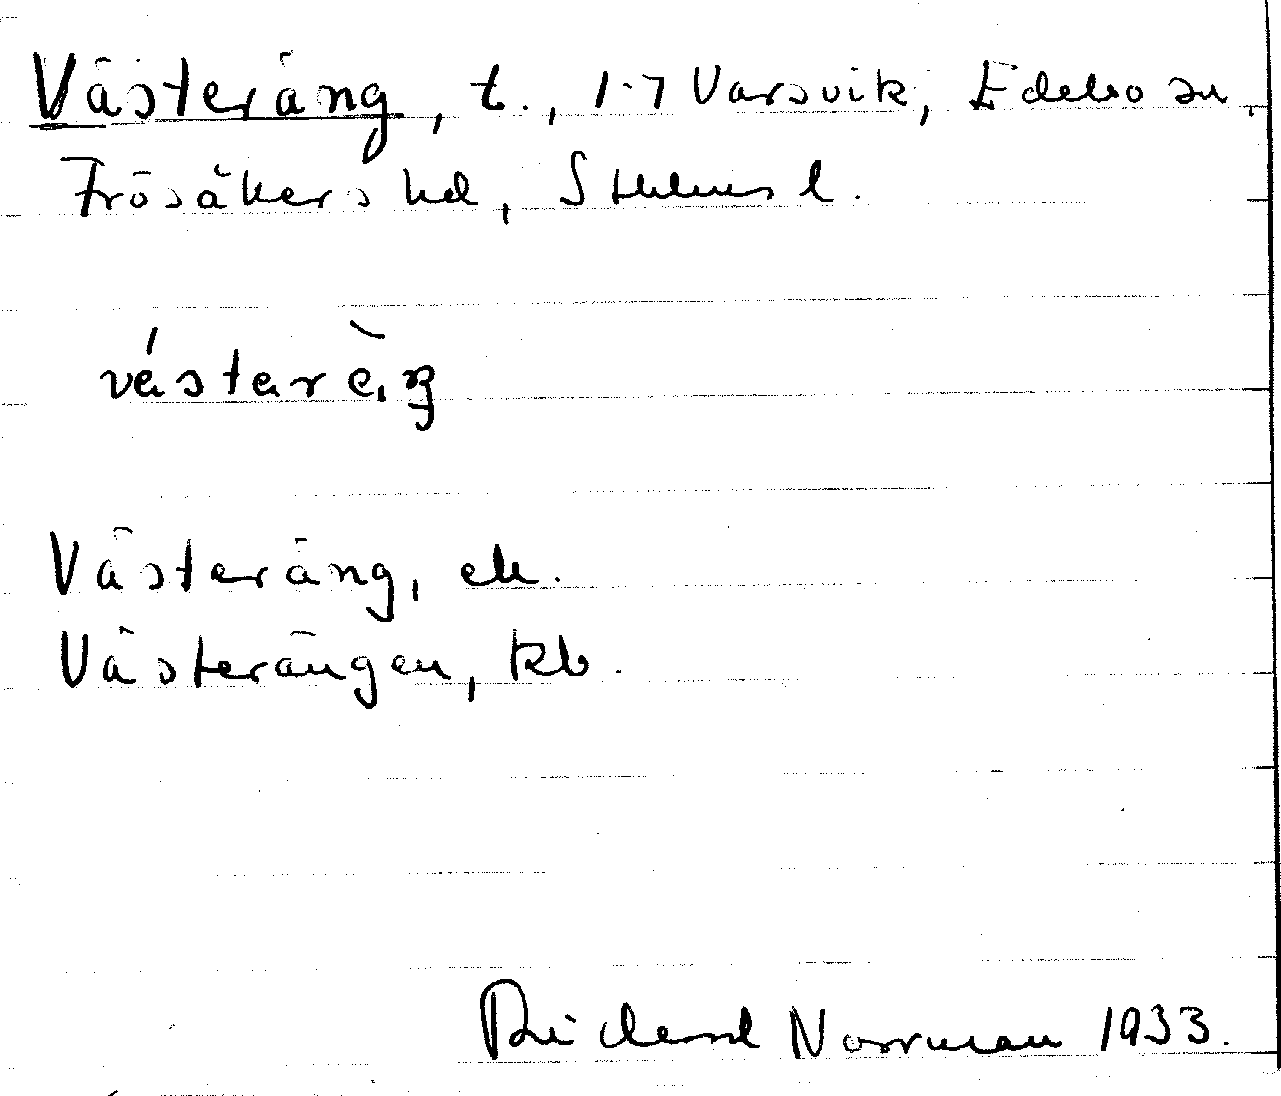 Västeräng, t., 1-7 Varsvik, Edebo sn,
Frösåkers hd, Sthlms l.
västerä̀ŋ
Västeräng, ek.
Västerängen, kb.
Richard Norrman 1933.